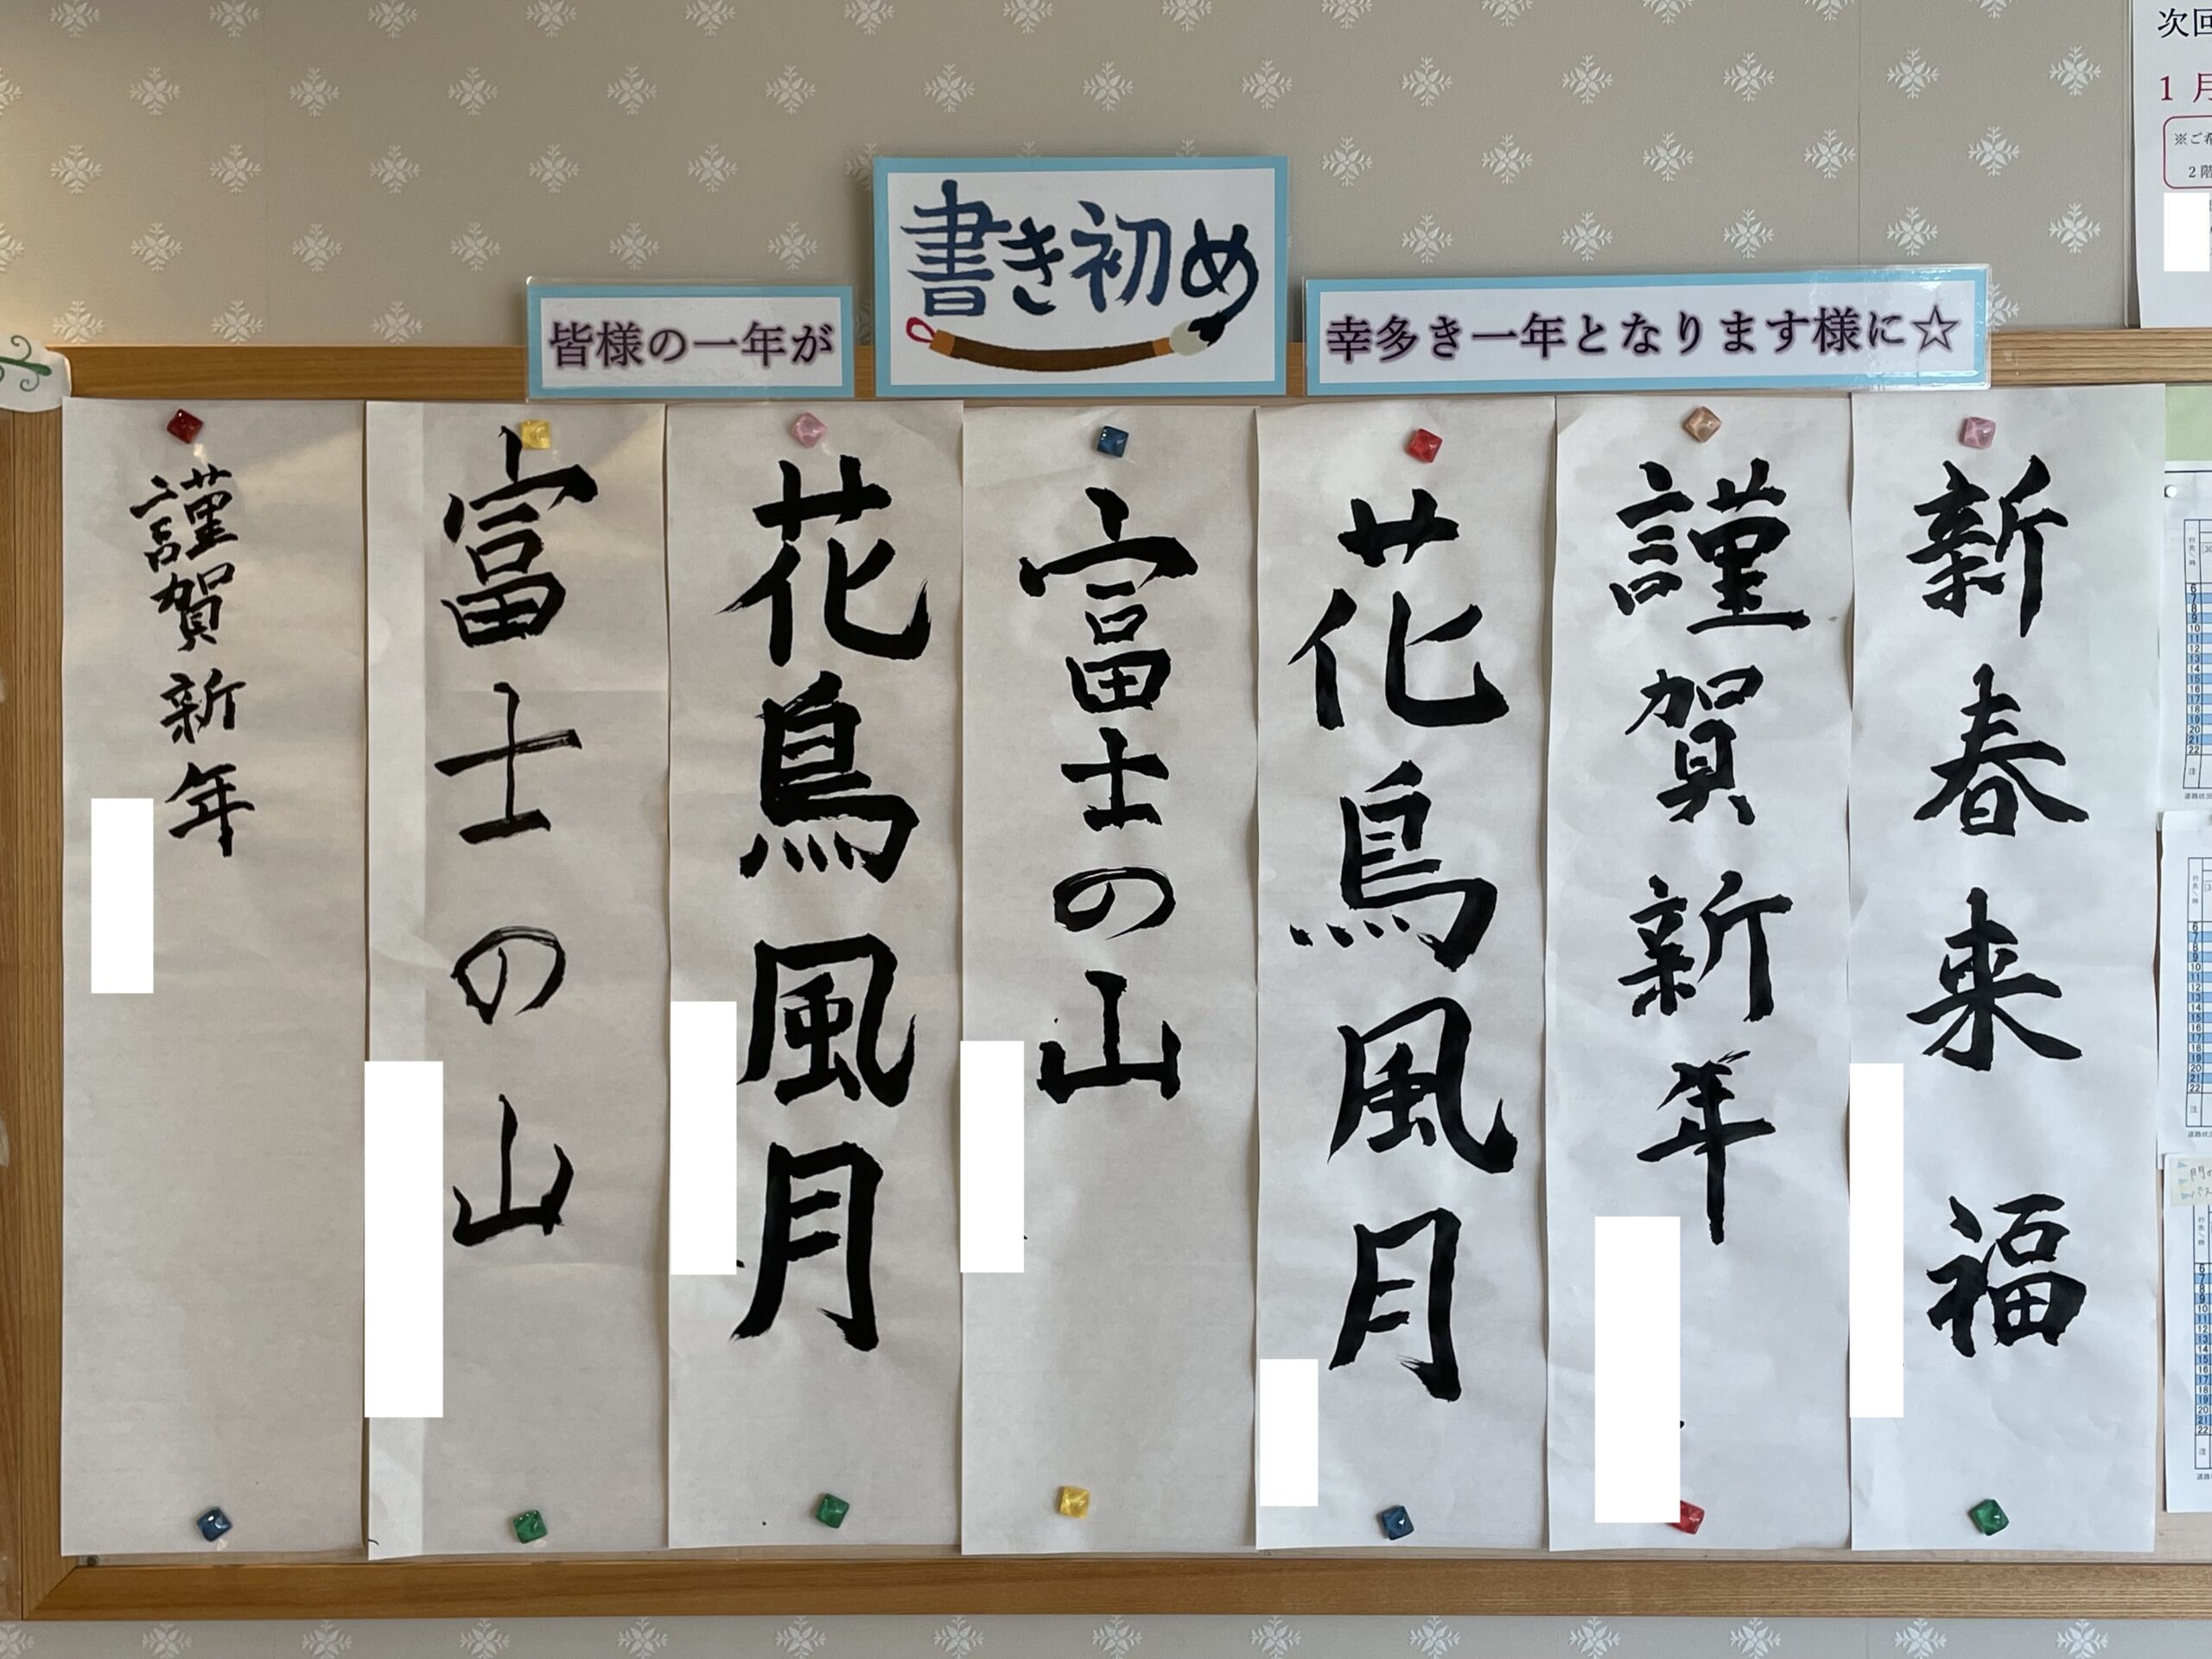 書き初め
皆様の一年が
幸多き一年となります様に☆
新春来福
謹賀新年
花鳥風月
富士の山
花鳥風月
富士の山
謹賀新年
次回
1 月
※ご希
2階